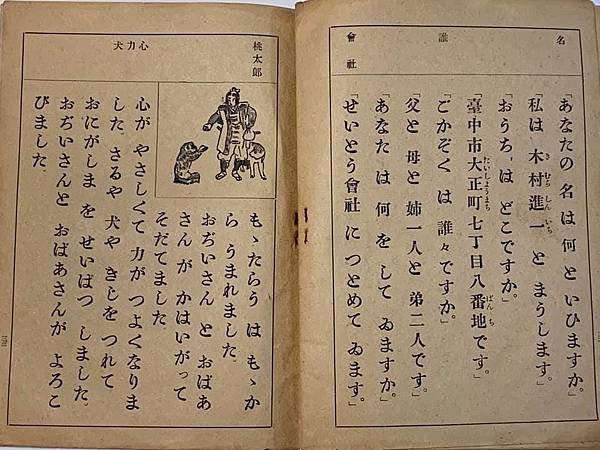 名
誰
會社
「あなたの 名 は 何 と いひますか。」
「私 は 木村進一 と まうします。」
「おうち は どこ ですか。」
「臺中市大正町七丁目八番地です。」
「ごかぞく は 誰々ですか。」
「父 と 母 と 姉一人 と 弟二人 です。」
「あなた は 何 を して ゐますか。」
「せいとう會社 に つとめて ゐます。」
桃太郎
心 力 犬
もゝたらう は もゝか
ら うまれました。
おぢいさん と おばあ
さん が かはいがって
そだてました。
心 が やさしくて 力 が つよく なりま
した。さる や 犬 や きじ を つれて
おにがしま を せいばつ しました。
おぢいさん と おばあさん が よろこ
びました。